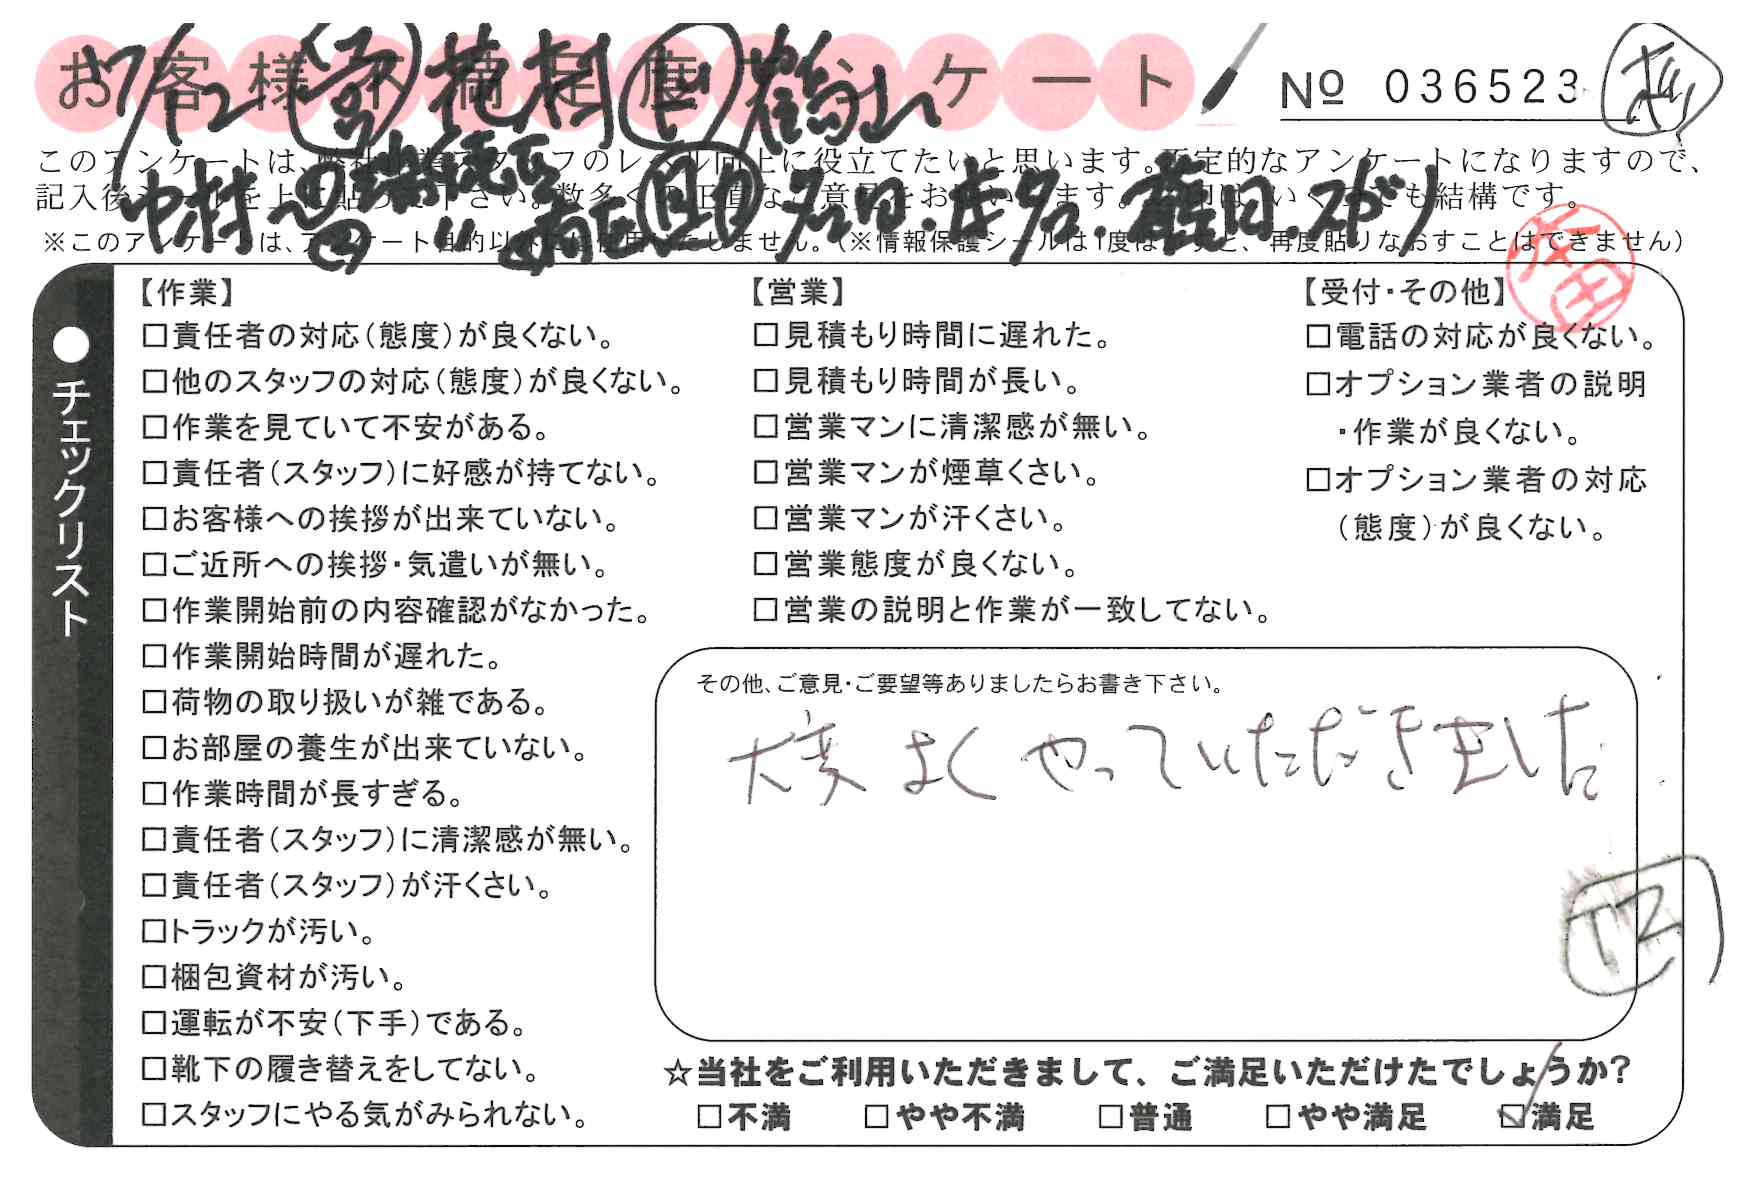 お客様不満足度アンケート
№ 036523
7/12
中村
このアンケートは、弊社作業スタッフのレベル向上に役立てたいと思います。否定的なアンケートになりますので、
記入後シールを上に貼って下さい。数多くの正直なご意見をお願いします。
※このアンケートは、アンケート目的以外には使用いたしません。(※情報保護シールは1度はがすと、再度貼りなおすことはできません)
チェックリスト
【作業】
□責任者の対応(態度)が良くない。
□他のスタッフの対応(態度)が良くない。
□作業を見ていて不安がある。
□責任者(スタッフ)に好感が持てない。
□お客様への挨拶が出来ていない。
□ご近所への挨拶・気遣いが無い。
□作業開始前の内容確認がなかった。
□作業開始時間が遅れた。
□荷物の取り扱いが雑である。
□お部屋の養生が出来ていない。
□作業時間が長すぎる。
□責任者(スタッフ)に清潔感が無い。
□責任者(スタッフ)が汗くさい。
□トラックが汚い。
□梱包資材が汚い。
□運転が不安(下手)である。
□靴下の履き替えをしてない。
□スタッフにやる気がみられない。
【営業】
□見積もり時間に遅れた。
□見積もり時間が長い。
□営業マンに清潔感が無い。
□営業マンが煙草くさい。
□営業マンが汗くさい。
□営業態度が良くない。
□営業の説明と作業が一致してない。
【受付・その他】
□電話の対応が良くない。
□オプション業者の説明
・作業が良くない。
□オプション業者の対応
(態度)が良くない。
その他、ご意見・ご要望等ありましたらお書き下さい。
大変よくやっていただきました
☆当社をご利用いただきまして、ご満足いただけたでしょうか?
□不満 □やや不満 □普通 □やや満足 ☑満足